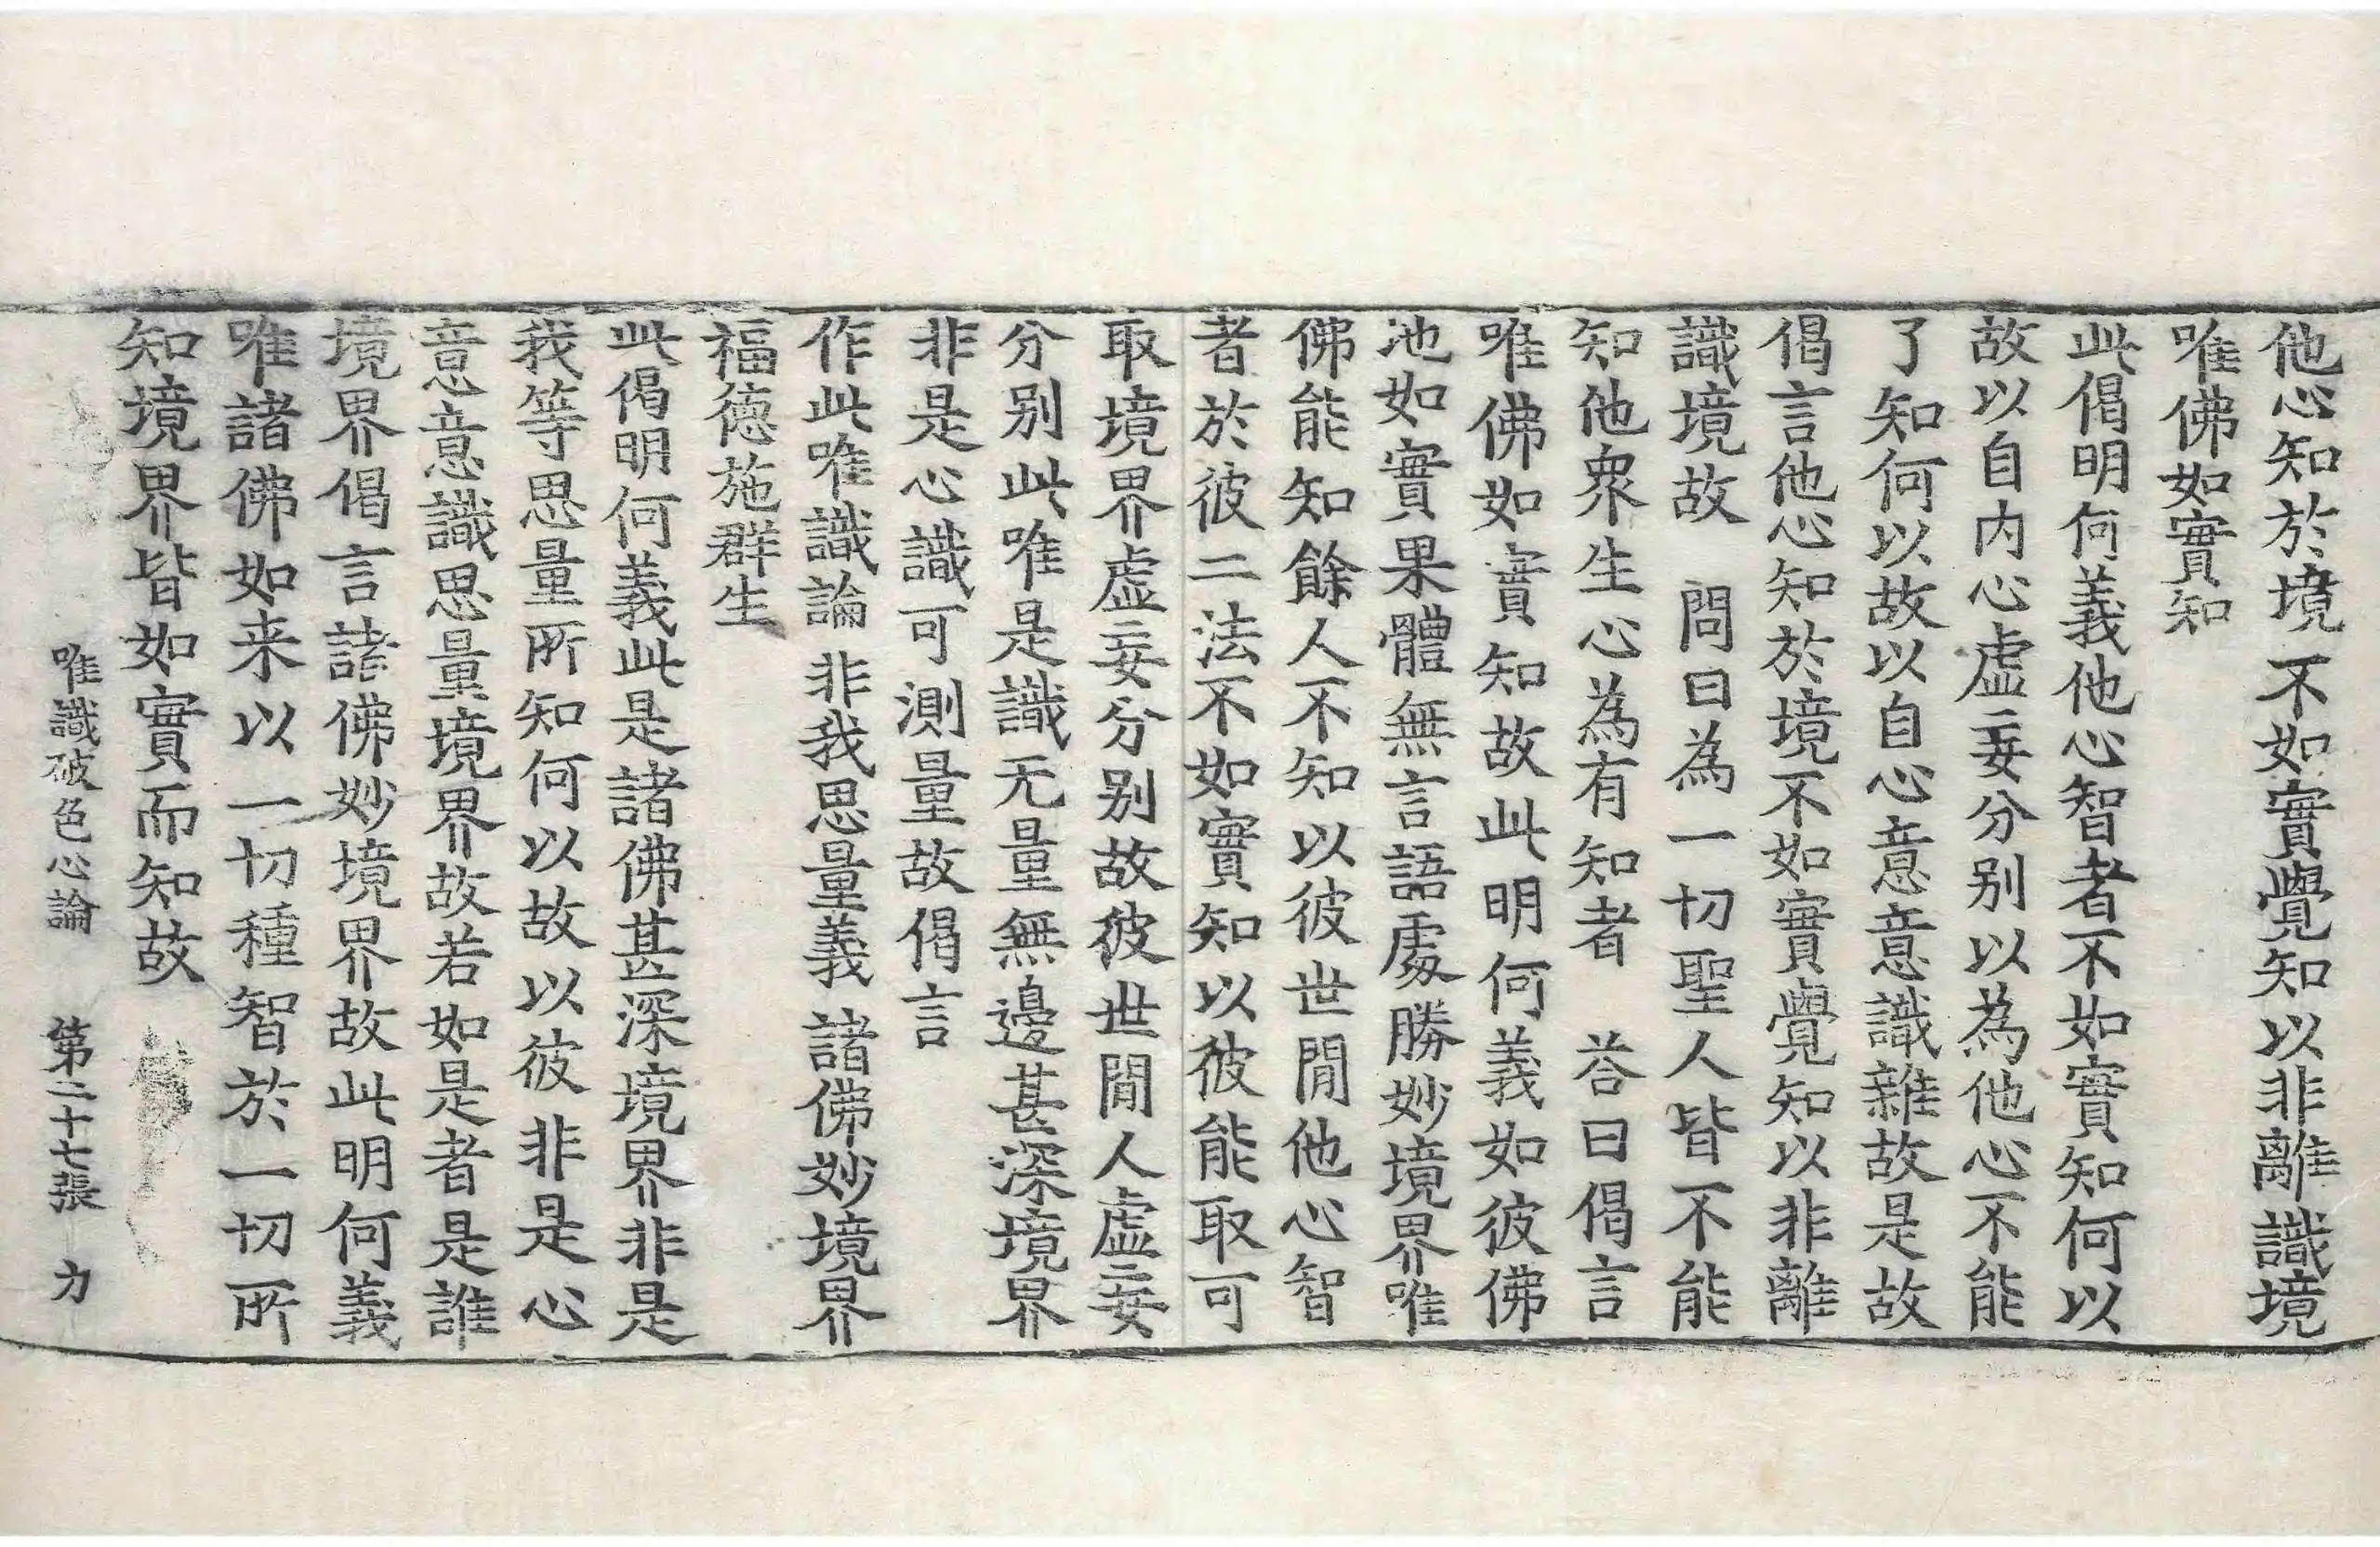 他心知於境 不如實覺知 以非離識境
唯佛如實知
此偈明何義他心智者不如實知何以
故以自内心虛妄分别以為他心不能
了知何以故以自心意意識雜故是故
偈言他心知於境不如實覺知以非離
識境故 問曰為一切聖人皆不能
知他衆生心為有知者 荅曰偈言
唯佛如實知故此明何義如彼佛
池如實果體無言語處勝妙境界唯
佛能知餘人不知以彼世間他心智
者於彼二法不如實知以彼能取可
取境界虛妄分别故彼世間人虛妄
分别此唯是識无量無邊甚深境界
非是心識可測量故偈言
作此唯識論 非我思量義 諸佛妙境界
福德施群生
此偈明何義此是諸佛甚深境界非是
我等思量所知何以故以彼非是心
意意識思量境界故若如是者是誰
境界偈言諸佛妙境界故此明何義
唯諸佛如来以一切種智於一切所
知境界皆如實而知故
唯識破色心論 第二十七張 力